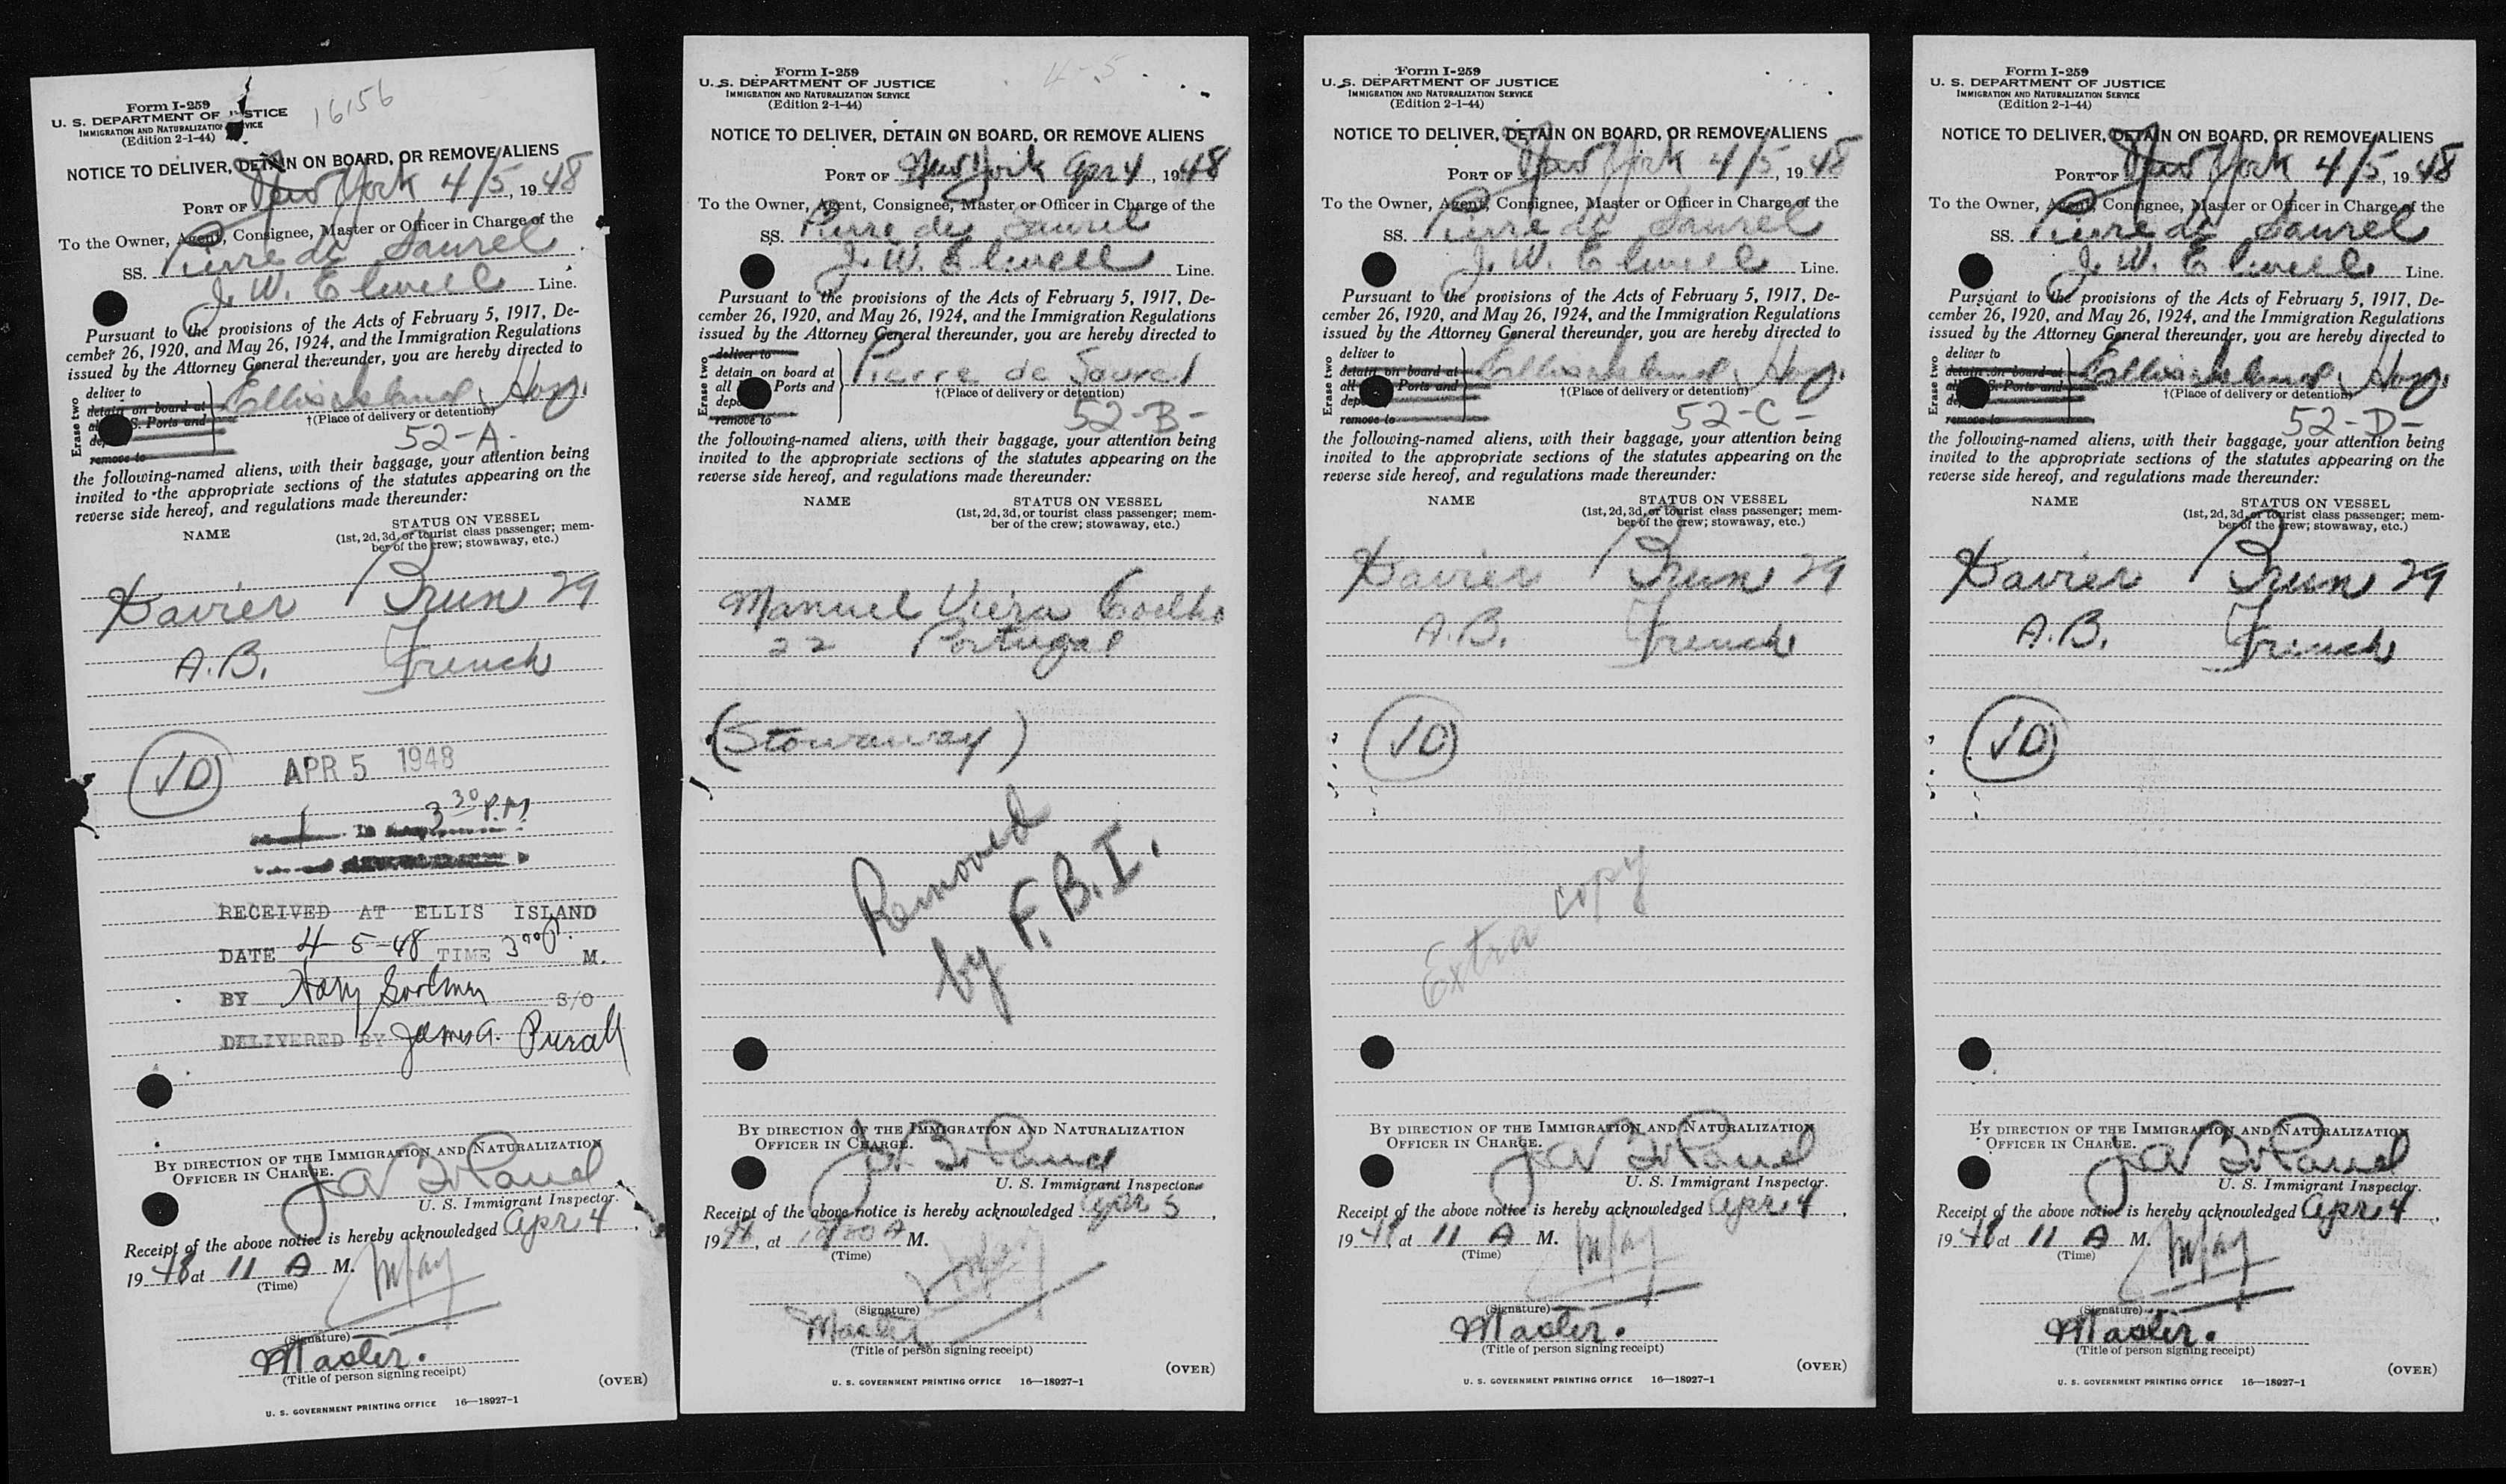 Form I-259
U. S. DEPARTMENT OF JUSTICE
IMMIGRATION AND NATURALIZATION SERVICE
(Edition 2-1-44)
16156
NOTICE TO DELIVER, DETAIN ON BOARD, OR REMOVE ALIENS
PORT OF New York 4/5, 1948
To the Owner, Agent, Consignee, Master or Officer in Charge of the
SS. Pierre de Saurel
J. W. Elwell Line.
Pursuant to the provisions of the Acts of February 5, 1917, De-
cember 26, 1920, and May 26, 1924, and the Immigration Regulations
issued by the Attorney General thereunder, you are hereby directed to
Erase two
deliver to
detain on board at
all U. S. Ports and
remove to
Ellis Island, Hosp.
†(Place of delivery or detention)
52-A-
the following-named aliens, with their baggage, your attention being
invited to the appropriate sections of the statutes appearing on the
reverse side hereof, and regulations made thereunder:
NAME STATUS ON VESSEL
(1st, 2d, 3d, or tourist class passenger; mem-
ber of the crew; stowaway, etc.)
Xavier Brun 29
A.B. French
VD
APR 5 1948
1 3 30 P.M
RECEIVED AT ELLIS ISLAND
DATE 4-5-48 TIME 3 00 P. M.
BY S/O
DELIVERED BY James A.
BY DIRECTION OF THE IMMIGRATION AND NATURALIZATION
OFFICER IN CHARGE.
U. S. Immigrant Inspector.
Receipt of the above notice is hereby acknowledged Apr 4,
1948 at 11 A M.
(Time)
(Signature)
Master.
(Title of person signing receipt)
(OVER)
U. S. GOVERNMENT PRINTING OFFICE 16—18927-1
Form I-259
U. S. DEPARTMENT OF JUSTICE
IMMIGRATION AND NATURALIZATION SERVICE
(Edition 2-1-44)
4-5
NOTICE TO DELIVER, DETAIN ON BOARD, OR REMOVE ALIENS
PORT OF New York Apr 4, 1948
To the Owner, Agent, Consignee, Master or Officer in Charge of the
SS. Pierre de Saurel
J. W. Elwell Line.
Pursuant to the provisions of the Acts of February 5, 1917, De-
cember 26, 1920, and May 26, 1924, and the Immigration Regulations
issued by the Attorney General thereunder, you are hereby directed to
Erase two
deliver to
detain on board at
all Ports and
remove to
Pierre de Saurel
†(Place of delivery or detention)
52-B-
the following-named aliens, with their baggage, your attention being
invited to the appropriate sections of the statutes appearing on the
reverse side hereof, and regulations made thereunder:
NAME STATUS ON VESSEL
(1st, 2d, 3d, or tourist class passenger; mem-
ber of the crew; stowaway, etc.)
Manuel Viera Coelho
22 Portugal
(Stowaway)
Removed
by F.B.I.
BY DIRECTION OF THE IMMIGRATION AND NATURALIZATION
OFFICER IN CHARGE.
U. S. Immigrant Inspector.
Receipt of the above notice is hereby acknowledged Apr 5,
1948, at A M.
(Time)
(Signature)
Master
(Title of person signing receipt)
(OVER)
U. S. GOVERNMENT PRINTING OFFICE 16—18927-1
Form I-259
U. S. DEPARTMENT OF JUSTICE
IMMIGRATION AND NATURALIZATION SERVICE
(Edition 2-1-44)
NOTICE TO DELIVER, DETAIN ON BOARD, OR REMOVE ALIENS
PORT OF New York 4/5, 1948
To the Owner, Agent, Consignee, Master or Officer in Charge of the
SS. Pierre de Saurel
J. W. Elwell Line.
Pursuant to the provisions of the Acts of February 5, 1917, De-
cember 26, 1920, and May 26, 1924, and the Immigration Regulations
issued by the Attorney General thereunder, you are hereby directed to
Erase two
deliver to
detain on board at
all Ports and
remove to
Ellis Island, Hosp.
†(Place of delivery or detention)
52-C-
the following-named aliens, with their baggage, your attention being
invited to the appropriate sections of the statutes appearing on the
reverse side hereof, and regulations made thereunder:
NAME STATUS ON VESSEL
(1st, 2d, 3d, or tourist class passenger; mem-
ber of the crew; stowaway, etc.)
Xavier Brun 29
A.B. French
VD
Extra copy
BY DIRECTION OF THE IMMIGRATION AND NATURALIZATION
OFFICER IN CHARGE.
U. S. Immigrant Inspector.
Receipt of the above notice is hereby acknowledged Apr 4,
1948, at 11 A M.
(Time)
(Signature)
Master.
(Title of person signing receipt)
(OVER)
U. S. GOVERNMENT PRINTING OFFICE 16—18927-1
Form I-259
U. S. DEPARTMENT OF JUSTICE
IMMIGRATION AND NATURALIZATION SERVICE
(Edition 2-1-44)
NOTICE TO DELIVER, DETAIN ON BOARD, OR REMOVE ALIENS
PORT OF New York 4/5, 1948
To the Owner, Agent, Consignee, Master or Officer in Charge of the
SS. Pierre de Saurel
J. W. Elwell Line.
Pursuant to the provisions of the Acts of February 5, 1917, De-
cember 26, 1920, and May 26, 1924, and the Immigration Regulations
issued by the Attorney General thereunder, you are hereby directed to
Erase two
deliver to
detain on board at
all S. Ports and
remove to
Ellis Island, Hosp.
†(Place of delivery or detention)
52-D-
the following-named aliens, with their baggage, your attention being
invited to the appropriate sections of the statutes appearing on the
reverse side hereof, and regulations made thereunder:
NAME STATUS ON VESSEL
(1st, 2d, 3d, or tourist class passenger; mem-
ber of the crew; stowaway, etc.)
Xavier Brun 29
A.B. French
VD
BY DIRECTION OF THE IMMIGRATION AND NATURALIZATION
OFFICER IN CHARGE.
U. S. Immigrant Inspector.
Receipt of the above notice is hereby acknowledged Apr 4,
1948 at 11 A M.
(Time)
(Signature)
Master.
(Title of person signing receipt)
(OVER)
U. S. GOVERNMENT PRINTING OFFICE 16—18927-1